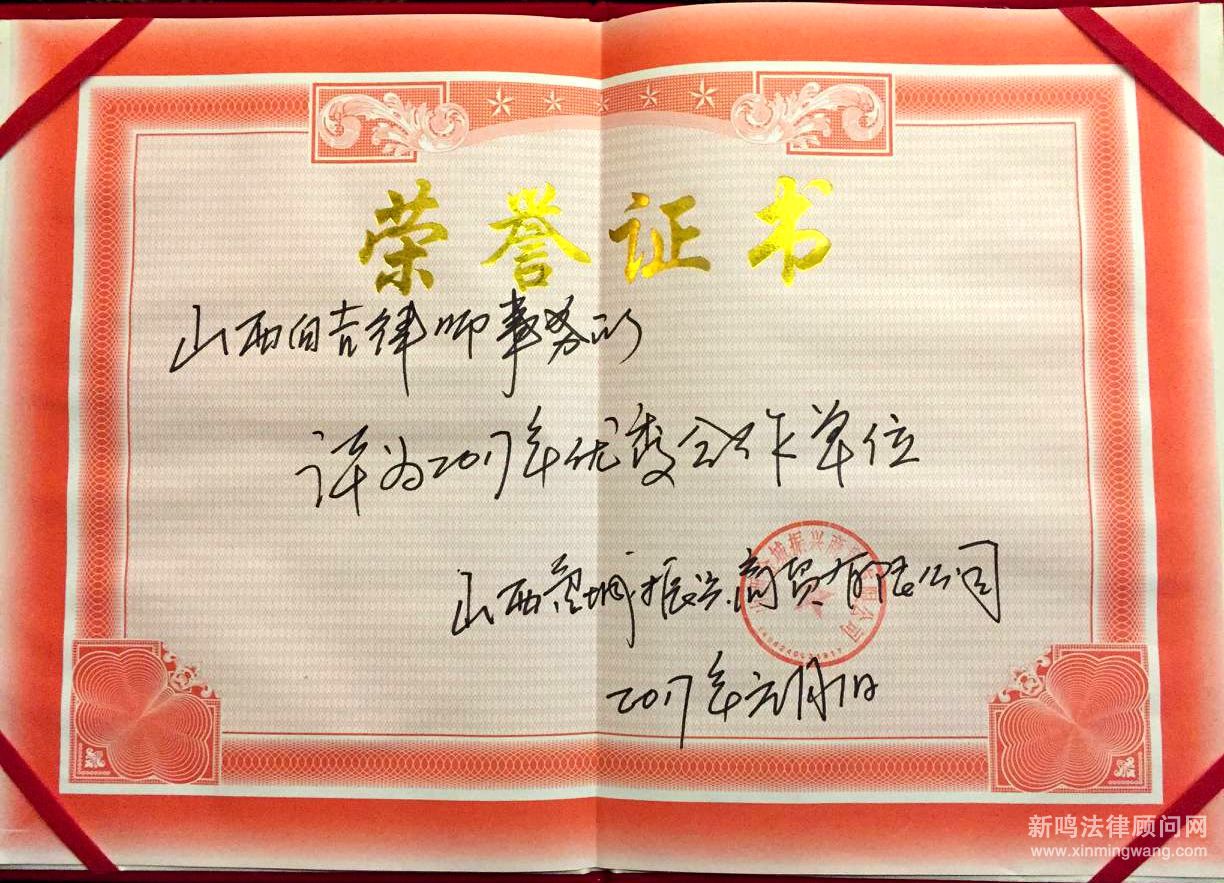 荣誉证书
山西自吉律师事务所
评为2017年优秀合作单位
山西 城振兴商贸有限公司
2017年元月1日
新鸣法律顾问网
www.xinmingwang.com